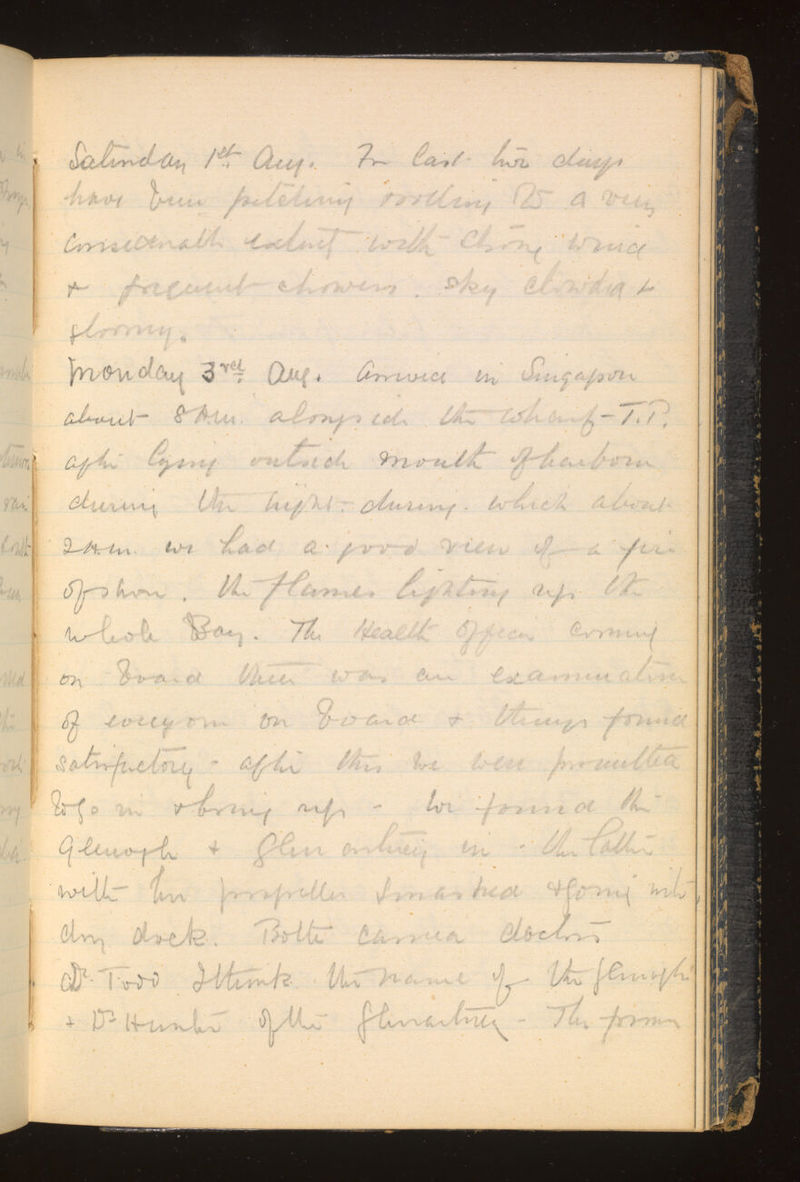 Saturday 1st Aug. For last two days
have been pitching & rolling to a very
considerable extent with strong wind
& frequent showers. Sky cloudy &
gloomy.
Monday 3rd Aug. Arrived in Singapore
about 8 AM. alongside the wharf - T.P.
after lying outside mouth of harbour
during the night. during. which about
2 A.m. we had a good view of a fire
on shore. the flames lighting up the
whole Bay. The Health Officer coming
on board there was an examination
of everyone on board & things found
satisfactory - after this we were permitted
to go in & bring up - We found the
Glenogle & Glenartney in - the latter
with her propeller smashed & going into
dry dock. Both carried doctors
Dr. Todd I think the name of the Glenogle
& Dr Hunter of the Glenartney - The former